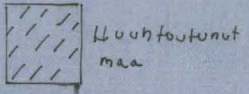 Huuhtoutunut
maa